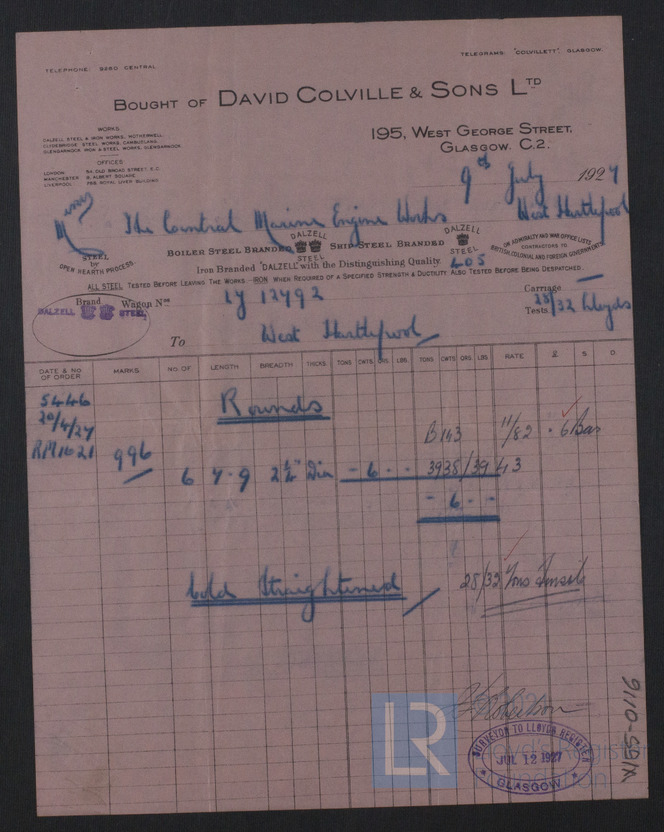 TELEPHONE: 9260 CENTRAL.
TELEGRAMS: "COLVILLETT", GLASGOW.
BOUGHT OF DAVID COLVILLE & SONS LTD
WORKS.
DALZELL STEEL & IRON WORKS, MOTHERWELL.
CLYDEBRIDGE STEEL WORKS, CAMBUSLANG.
GLENGARNOCK IRON & STEEL WORKS, GLENGARNOCK.
OFFICES
LONDON: 54, OLD BROAD STREET, E.C.
MANCHESTER: 9, ALBERT SQUARE
LIVERPOOL: ROYAL LIVER BUILDING
195, WEST GEORGE STREET,
GLASGOW. C.2.
9th July 1927
Messrs The Central Marine Engine Works West Hartlepool
STEEL by OPEN HEARTH PROCESS.
BOILER STEEL BRANDED DALZELL STEEL SHIP STEEL BRANDED DALZELL STEEL
ON ADMIRALTY AND WAR OFFICE LISTS
CONTRACTORS TO
BRITISH, COLONIAL AND FOREIGN GOVERNMENTS
Iron Branded "DALZELL" with the Distinguishing Quality.
405
ALL STEEL TESTED BEFORE LEAVING THE WORKS - IRON WHEN REQUIRED OF A SPECIFIED STRENGTH & DUCTILITY ALSO TESTED BEFORE BEING DESPATCHED.
Brand
DALZELL STEEL
Wagon Nos. 12492
Carriage
Tests 28/32 Lloyds
To West Hartlepool
DATE & NO OF ORDER MARKS NO. OF LENGTH BREADTH THICKS. TONS CWTS QRS. LBS TONS CWTS QRS LBS RATE £ S D.
5446
20/4/27
RM1621
Rounds
B143 11/82 6 Bars
996
6 7-9 2¼" Dia - 6 - - 3938/39 43
- 6 - -
Cold Straightened
28/32 Tons Tensile
Robertson
SURVEYOR TO LLOYDS REGISTER
JUL 12 1927
GLASGOW
LR
Lloyd's Register
Foundation